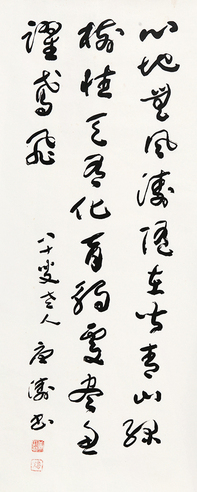 心地無風濤隨在皆青山綠
樹性天有化育觸處盡魚
躍鳶飛
八十叟老人唐濤書